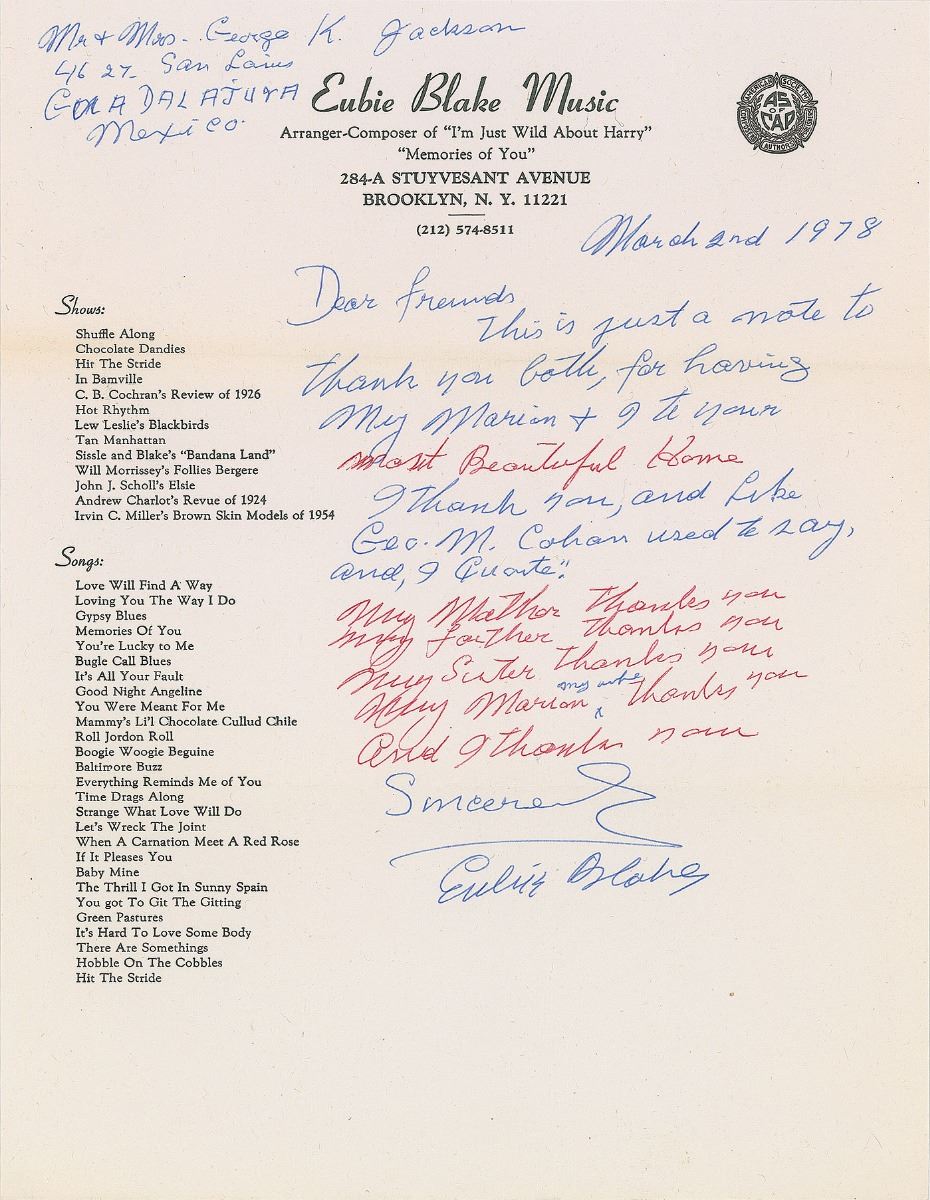 Mr + Mrs. George K. Jackson
46 27- San Louis
GUADALAJURA
Mexico.
Eubie Blake Music
Arranger-Composer of "I'm Just Wild About Harry"
"Memories of You"
284-A STUYVESANT AVENUE
BROOKLYN, N. Y. 11221
(212) 574-8511
AMERICAN SOCIETY
AS
OF
CAP
AUTHORS
March 2nd 1978
Dear freinds
This is just a note to
thank you both, for having
My Marion + I to your
most Beautuful Home
I thank you, and Like
Geo. M. Cohan used to say,
and, I Quoite":
My Mather thanks you
my farther thanks you
My Sister thanks you
my wife
My Marion ^ thanks you
And I thanks you
Sincerely
Eubie Blake
Shows:
Shuffle Along
Chocolate Dandies
Hit The Stride
In Bamville
C. B. Cochran's Review of 1926
Hot Rhythm
Lew Leslie's Blackbirds
Tan Manhattan
Sissle and Blake's "Bandana Land"
Will Morrissey's Follies Bergere
John J. Scholl's Elsie
Andrew Charlot's Revue of 1924
Irvin C. Miller's Brown Skin Models of 1954
Songs:
Love Will Find A Way
Loving You The Way I Do
Gypsy Blues
Memories Of You
You're Lucky to Me
Bugle Call Blues
It's All Your Fault
Good Night Angeline
You Were Meant For Me
Mammy's Li'l Chocolate Cullud Chile
Roll Jordon Roll
Boogie Woogie Beguine
Baltimore Buzz
Everything Reminds Me of You
Time Drags Along
Strange What Love Will Do
Let's Wreck The Joint
When A Carnation Meet A Red Rose
If It Pleases You
Baby Mine
The Thrill I Got In Sunny Spain
You got To Git The Gitting
Green Pastures
It's Hard To Love Some Body
There Are Somethings
Hobble On The Cobbles
Hit The Stride